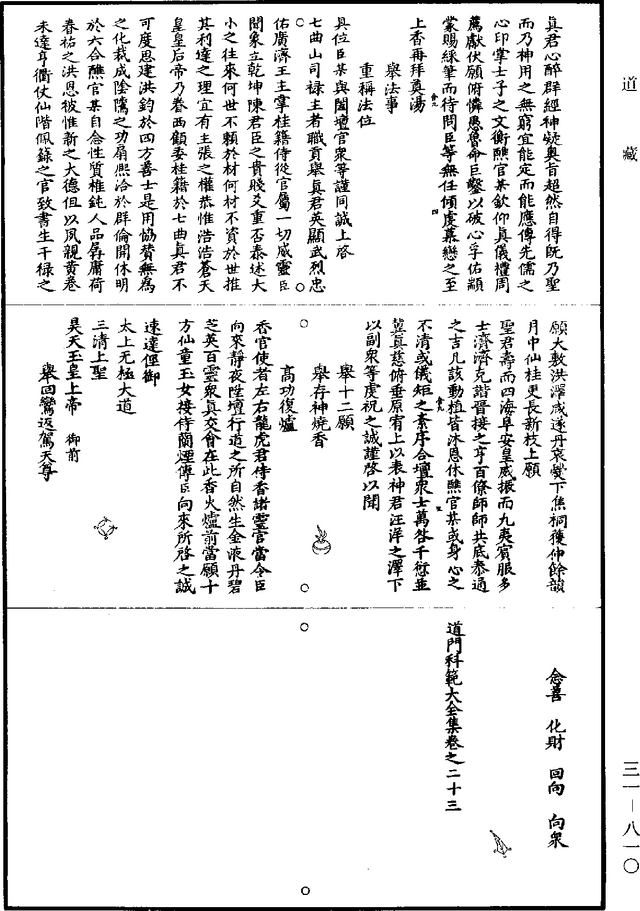 道藏
真君心醉群經神凝奧旨超然自得既乃聖
而乃神用之無窮宜能定而能應傳先儒之
心印掌士子之文衡醮官某欽仰真儀禮周
薦獻伏願俯憐愚魯命巨鑿以破心孚佑顓
蒙賜綵筆而待問臣等無任傾虔慕戀之至
上香再拜奠湯
舉法事
重稱法位
具位臣某與闔壇官衆等謹同誠上啓
七曲山司禄主者職貢舉真君英顯武烈忠
佑廣濟王主掌桂籍侍從官屬一切威靈臣
聞象立乾坤陳君臣之貴賤爻重否泰述大
小之往來何世不賴於材何材不資於世推
其利達之理宜有主張之權恭惟浩浩蒼天
皇皇后帝乃眷西顧委桂籍於七曲真君不
可度思建洪鈞於四方善士是用協贊無為
之化裁成陰騭之功扇熈洽於群倫開休明
於六合醮官某自念性質椎鈍人品孱庸荷
春祐之洪恩被惟新之大德但以夙親黄卷
未達亨衢仗仙階佩籙之官致書生干禄之
願大敷洪澤咸遂丹衷爨下焦桐獲伸餘韻
月中仙桂更長新枝上願
聖君壽而四海阜安皇威振而九夷賓服多
士濟濟克諧晉接之亨百僚師師共底泰通
之吉凡該動植皆沐恩休醮官某或身心之
不清或儀矩之紊序合壇衆士萬咎千愆並
冀真慈俯垂原宥上以表神君汪洋之澤下
以副衆等虔祝之誠謹啓以聞
舉十二願
舉存神燒香
高功復爐
香官使者左右龍虎君侍香諸靈官當令臣
向來靜夜陞壇行道之所自然生金液丹碧
芝英百靈衆真交會在此香火爐前當願十
方仙童玉女接侍蘭煙傳臣向來所啓之誠
速達徑御
太上无極大道
三清上聖
昊天玉皇上帝 御前
舉回鸞返駕天尊
念善 化財 回向 向衆
道門科範大全集卷之二十三
三一—八一〇